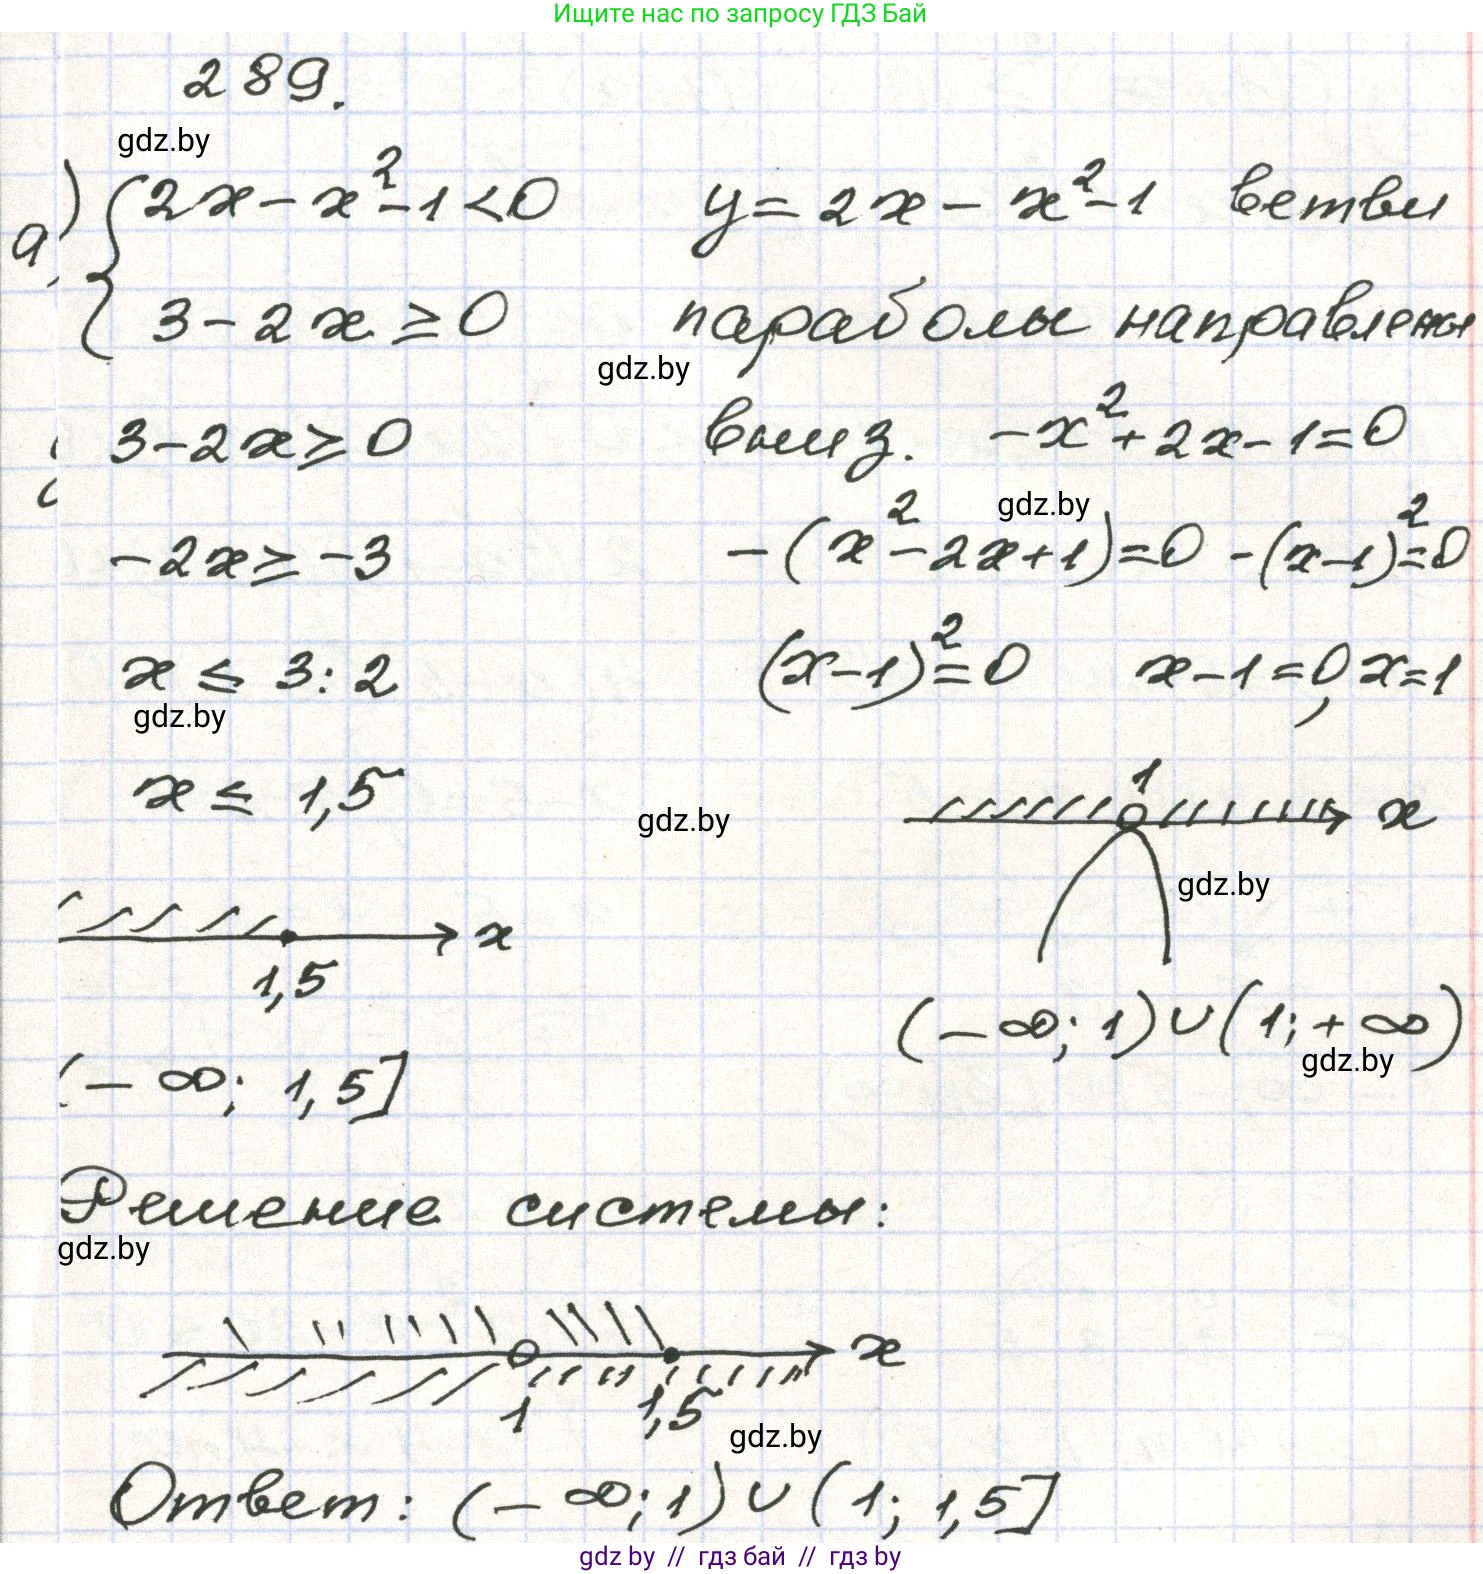 Ищите нас по запросу ГДЗ Бай
289.
gdz.by
а) { 2x - x² - 1 < 0
3 - 2x ≥ 0
y = 2x - x² - 1 ветви
параболы направлены
gdz.by
вниз. -x² + 2x - 1 = 0
gdz.by
-(x² - 2x + 1) = 0 -(x - 1)² = 0
(x - 1)² = 0 x - 1 = 0, x = 1
3 - 2x ≥ 0
-2x ≥ -3
x ≤ 3 : 2
gdz.by
x ≤ 1,5
gdz.by
1 x
gdz.by
x
1,5
(-∞; 1) ∪ (1; +∞)
gdz.by
(-∞; 1,5]
Решение системы:
gdz.by
x
1 1,5
gdz.by
Ответ: (-∞; 1) ∪ (1; 1,5]
gdz by // гдз бай // гдз by